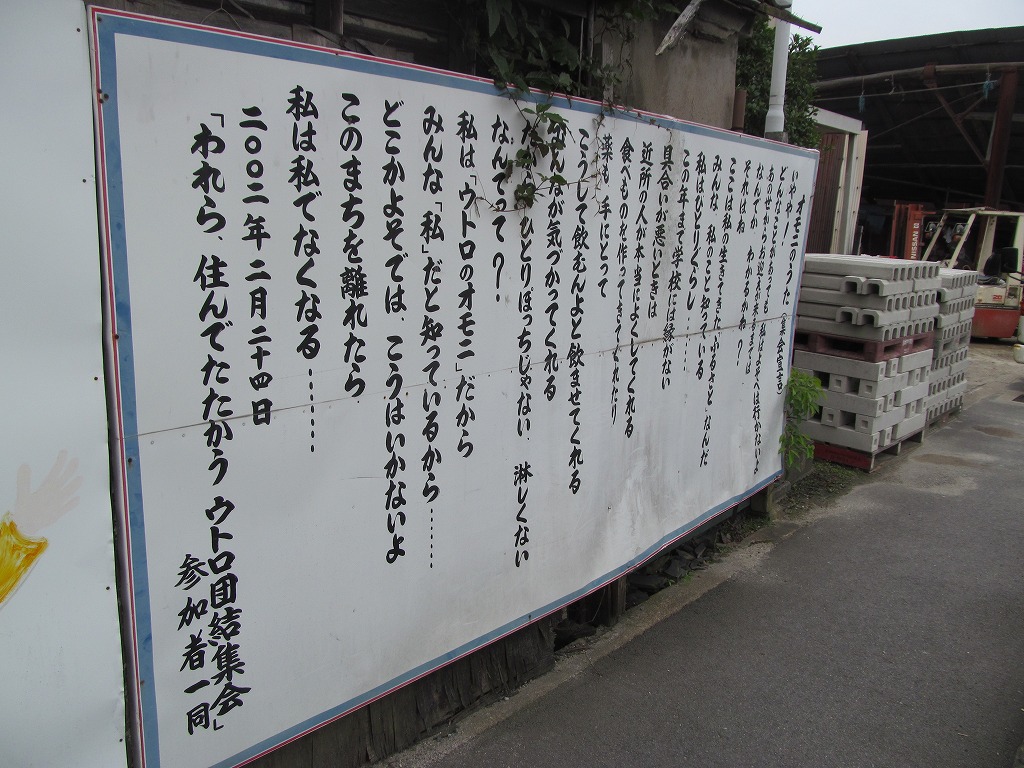 オモニのうた (集会宣言)
いやや!
どんなことがあろうても 私はよそへは行かないよ
あの世からお迎えが来るまでは
なんでか わかるかね?
それはね
ここは私の生きてきた、ふるさと、なんだ
みんな、私のこと知っている
私はひとりぐらし……
この年まで学校には縁がない
具合いが悪いときは
近所の人が本当によくしてくれる
食べものを作ってきてくれたり
薬も 手にとって
こうして飲むんよと飲ませてくれる
みんなが気づかってくれる
だからひとりぼっちじゃない、淋しくない
なんでって?
私は「ウトロのオモニ」だから
みんな「私」だと知っているから……
どこかよそでは、こうはいかないよ
このまちを離れたら
私は私でなくなる………
二〇〇二年二月二十四日
「われら、住んでたたかう ウトロ団結集会」
参加者一同
NISSAN